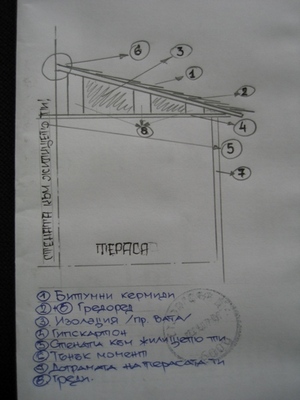 6
3
1
2
8
4
5
7
СТЕНАТА КЪМ ЖИЛИЩЕТО ТИ!
ТЕРАСА
1 БИТУМНИ КЕРМИДИ
3 ИЗОЛАЦИЯ /ПР. ВАТА/
4 ГИПСКАРТОН
5 СТЕНАТА КЪМ ЖИЛИЩЕТО ТИ
6 ТЪНЪК МОМЕНТ
7 ДОГРАМАТА НА ТЕРАСАТА ТИ
8 ГРЕДИ.